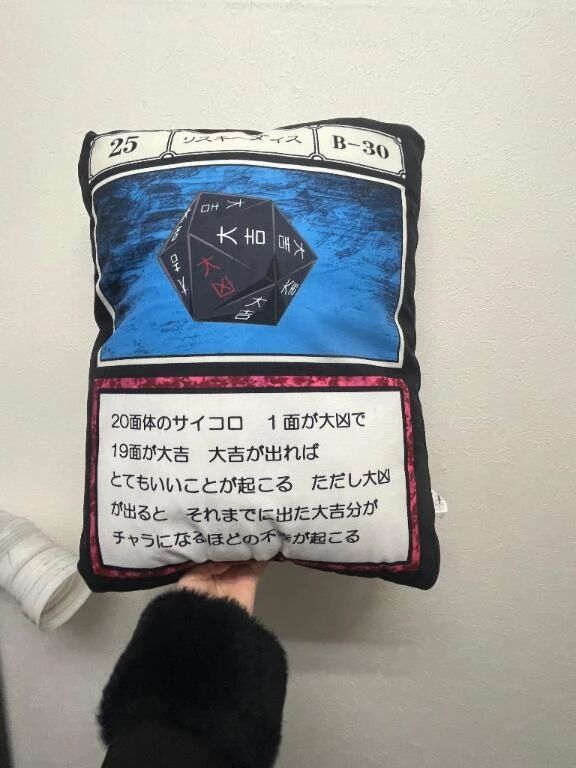 25
リスキーダイス
B-30
大吉
大吉
大吉
大吉
大吉
大凶
大吉
大吉
20面体のサイコロ　１面が大凶で
19面が大吉　大吉が出れば
とてもいいことが起こる　ただし大凶
が出ると　それまでに出た大吉分が
チャラになるほどの不が起こる